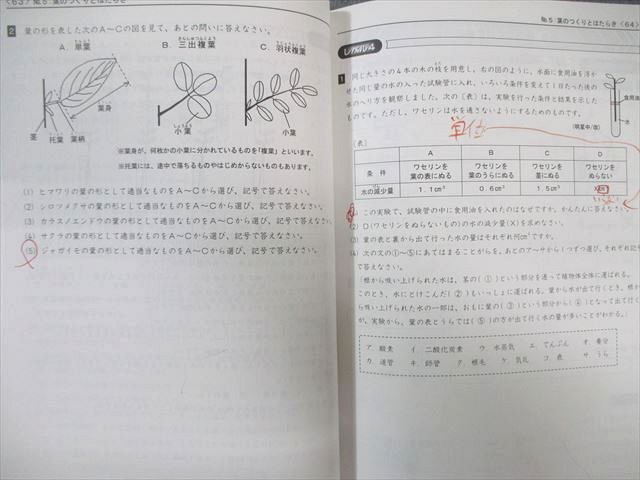 〈63〉 No.5 葉のつくりとはたらき
2 葉の形を表した次のA～Cの図を見て，あとの問いに答えなさい。
A．単葉 B．三出複葉 C．羽状複葉
葉身
茎 托葉 葉柄
小葉
小葉
※葉身が，何枚かの小葉に分かれているものを「複葉」といいます。
※托葉には，途中で落ちるものやはじめからないものもあります。
(1) ヒマワリの葉の形として適当なものをA～Cから選び，記号で答えなさい。
(2) シロツメクサの葉の形として適当なものをA～Cから選び，記号で答えなさい。
(3) カラスノエンドウの葉の形として適当なものをA～Cから選び，記号で答えなさい。
(4) サクラの葉の形として適当なものをA～Cから選び，記号で答えなさい。
(5) ジャガイモの葉の形として適当なものをA～Cから選び，記号で答えなさい。
No.5 葉のつくりとはたらき 〈64〉
レベル4
1 同じ大きさの4本の木の枝を用意し，右の図のように，水面に食用油を浮か
せた同じ量の水の入った試験管に入れ，いろいろ条件を変えて1日たった後の
水のへり方を観察しました。次の〔表〕は，実験を行った条件と結果を示した
ものです。ただし，ワセリンは水を通さないようにするためのものです。
(明星中/改)
水
単位
〔表〕
A B C D
条件 ワセリンを葉の表にぬる ワセリンを葉のうらにぬる ワセリンを茎にぬる ワセリンをぬらない
水の減少量 1.1cm³ 0.6cm³ 1.5cm³ Xcm³
(1) この実験で，試験管の中に食用油を入れたのはなぜですか。かんたんに答えなさい。
(2) D(ワセリンをぬらないもの)の水の減少量(X)を求めなさい。
(3) 葉の表と裏から出て行った水の量はそれぞれ何cm³ですか。
(4) 次の文の①～⑤にあてはまることがらを，あとのア～サから1つずつ選び，それぞれ記号
で答えなさい。
「根から吸い上げられた水は，茎の(①)という部分を通って植物体全体に運ばれる。
このとき，水にとけこんだ(②)もいっしょに運ばれる。葉から水が出て行くとき，根か
ら吸い上げられた水の一部は，おもに葉の(③)という部分から(④)となって出て行く
が，実験から，葉の表とうらでは(⑤)の方が出て行く水の量が多いことがわかる。」
ア．酸素 イ．二酸化炭素 ウ．水蒸気 エ．でんぷん オ．養分
カ．道管 キ．師管 ク．根毛 ケ．気孔 コ．表 サ．うら